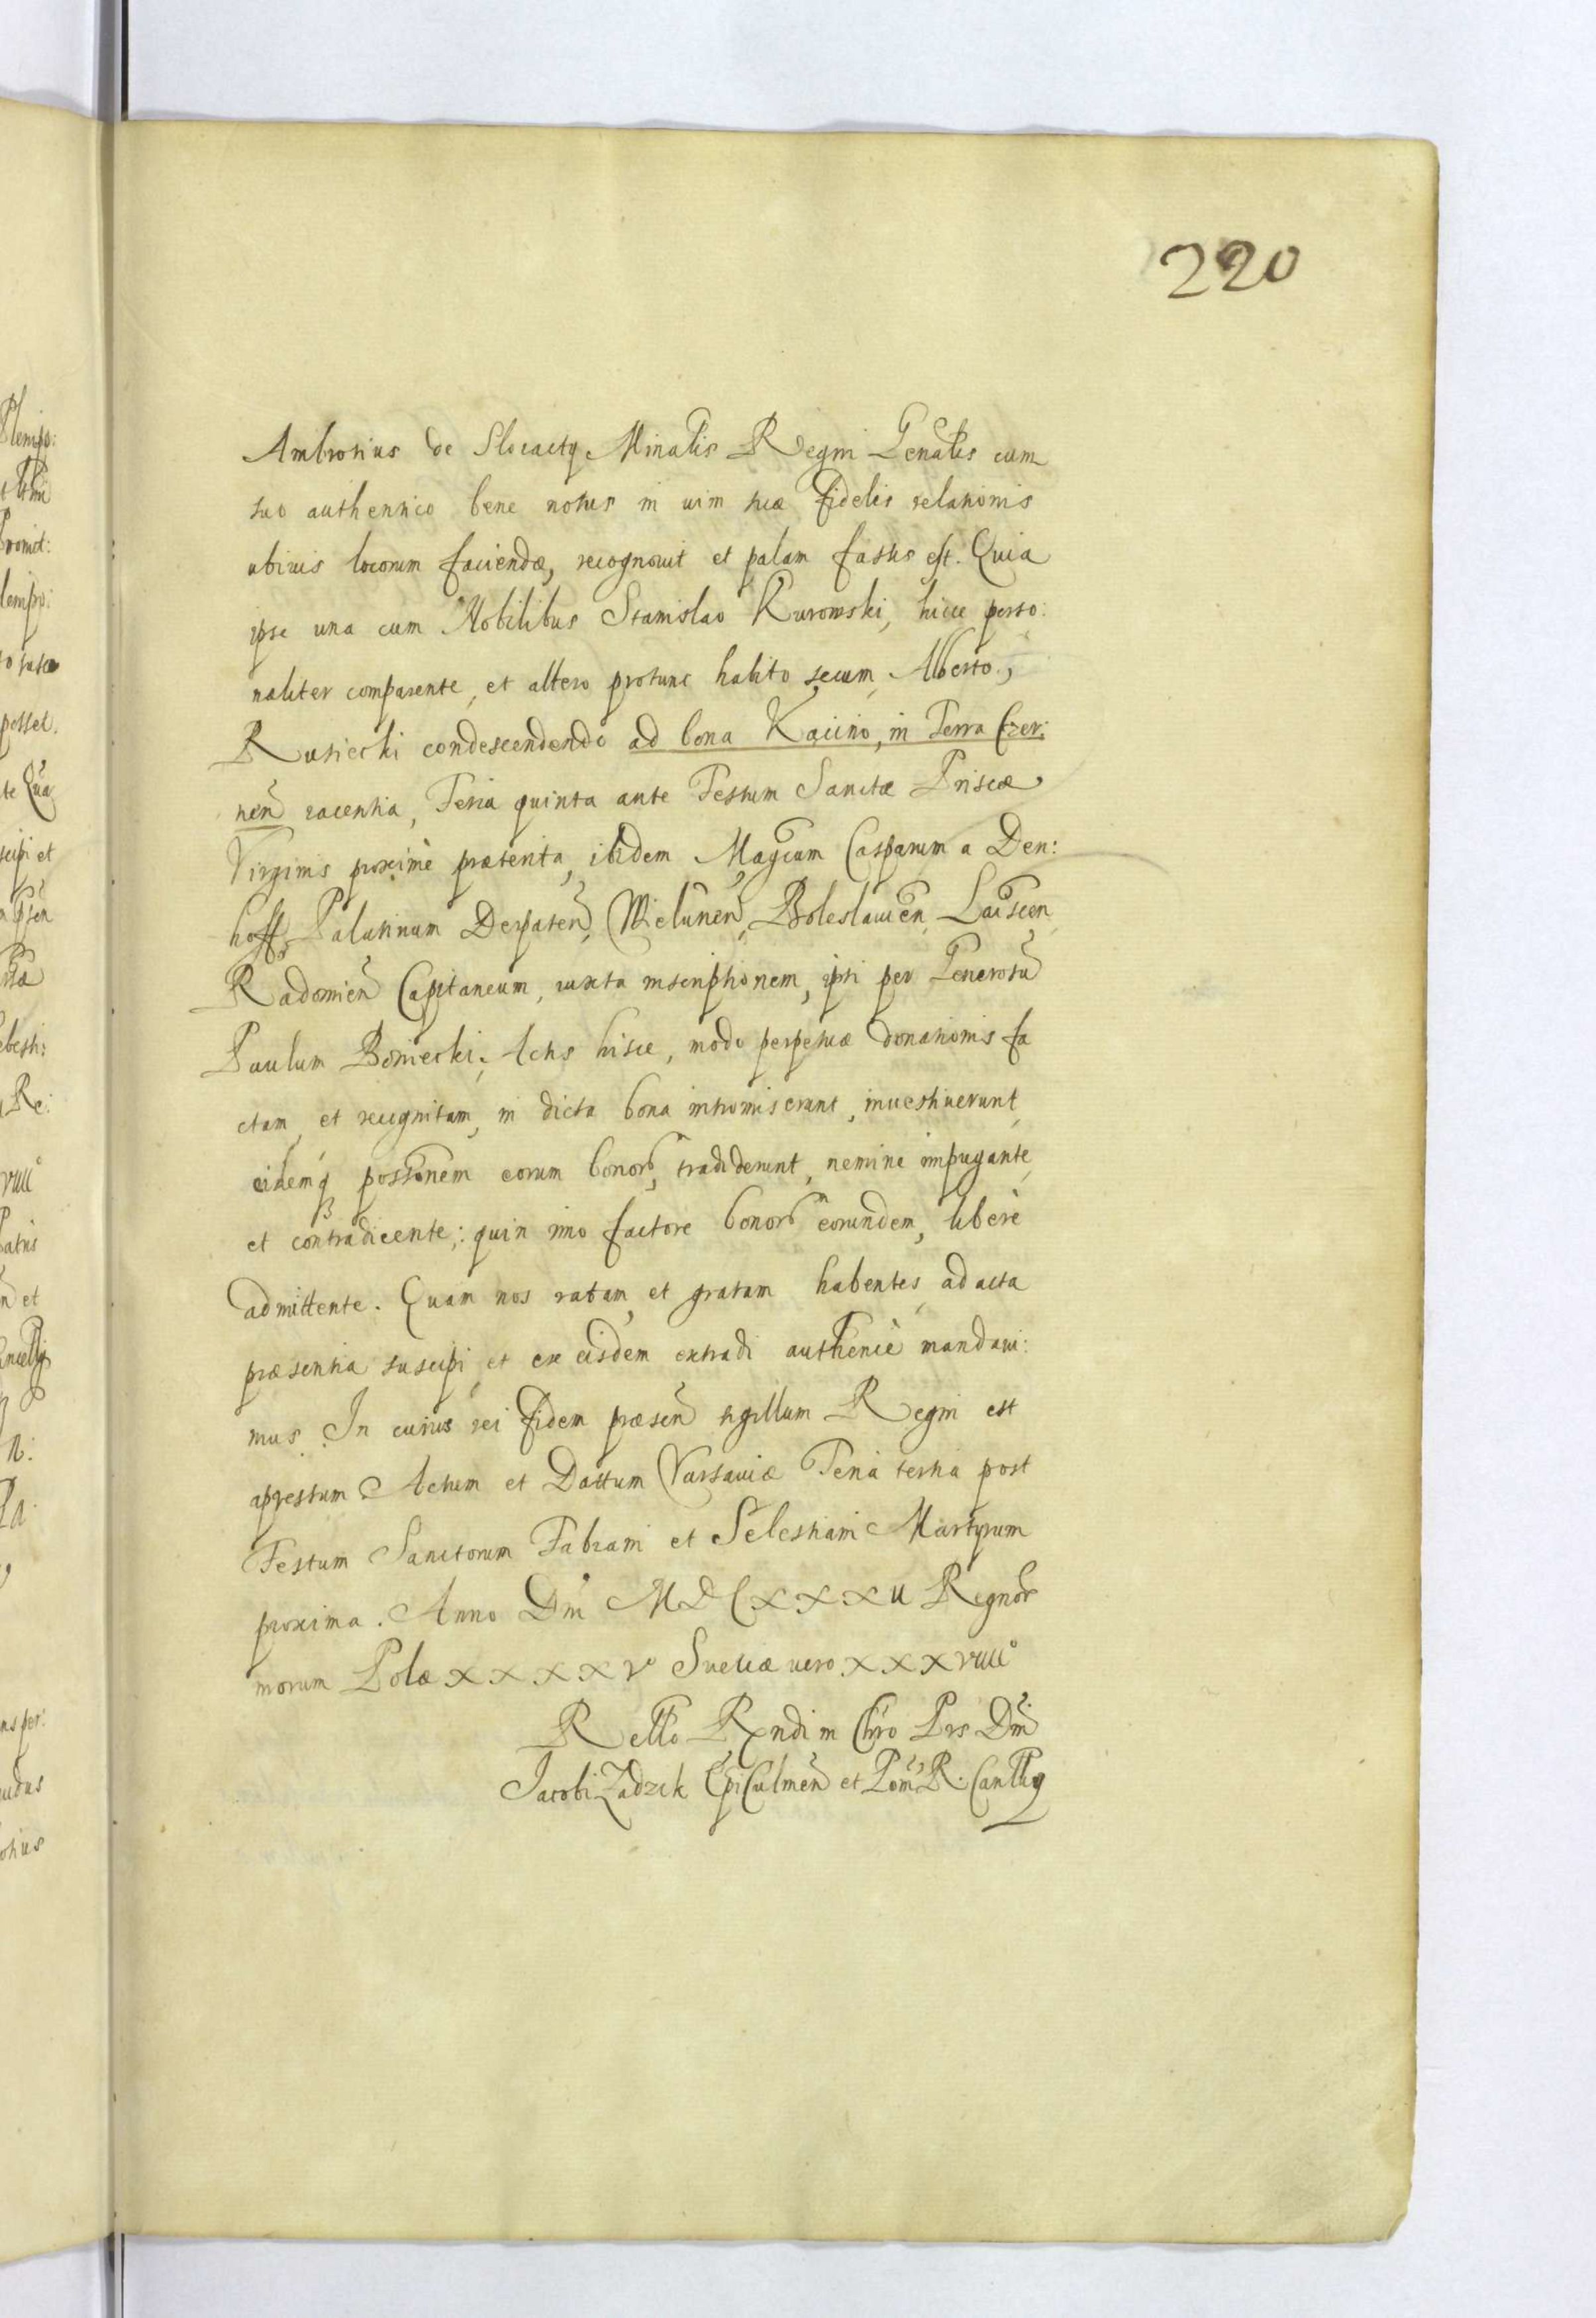 220
Ambrosius de Slocacty Minalis Regni Genalis cum
suo authentico bene notus in uim suæ fidelis relationis
ubiuis locorum faciendæ, recognouit et palam fassus est. Quia
ipse una cum Nobilibus Stanislao Kurowski, hicce perso:
naliter comparente, et altero protunc habito secum, Alberto,
Rusiecki condescendendo ad bona Kacino, in Terra Czer:
nen iacentia, Feria quinta ante Festum Sanctæ Priscæ
Virginis proxime præterita, ibidem Magcum Casparum a Den:
hoff, Palatinum Derpaten, Wielunen, Boleslauien,
Radomien Capitaneum, iuxta inscriptionem, ipsi per Generosu
Paulum Boniecki, Actis hisce, modo perpetuæ donationis fa
ctam, et recognitam, in dicta bona intromiserunt, inuestiuerunt,
eidemq possonem eorum bonor, tradiderunt, nemine impugante,
et contradicente; quin imo factore bonor eorundem, libere
admittente. Quam nos ratam, et gratam habentes, ad acta
præsentia suscipi, et ex eisdem extradi authence mandaui:
mus. In cuius rei fidem præsen sigillum Regni est
apressum. Actum et Dattum Varsauiæ Feria tertia post
Festum Sanctorum Fabiani et Sebestiani Martyrum
proxima. Anno Dni MDCXXXII Regnor
nrorum Polæ XXXXV Sueciæ uero XXXVIII°
Rello Rxndi in Chro Prs Dni
Jacobi Zadzik Epi Culmen et Pom R. Canlly